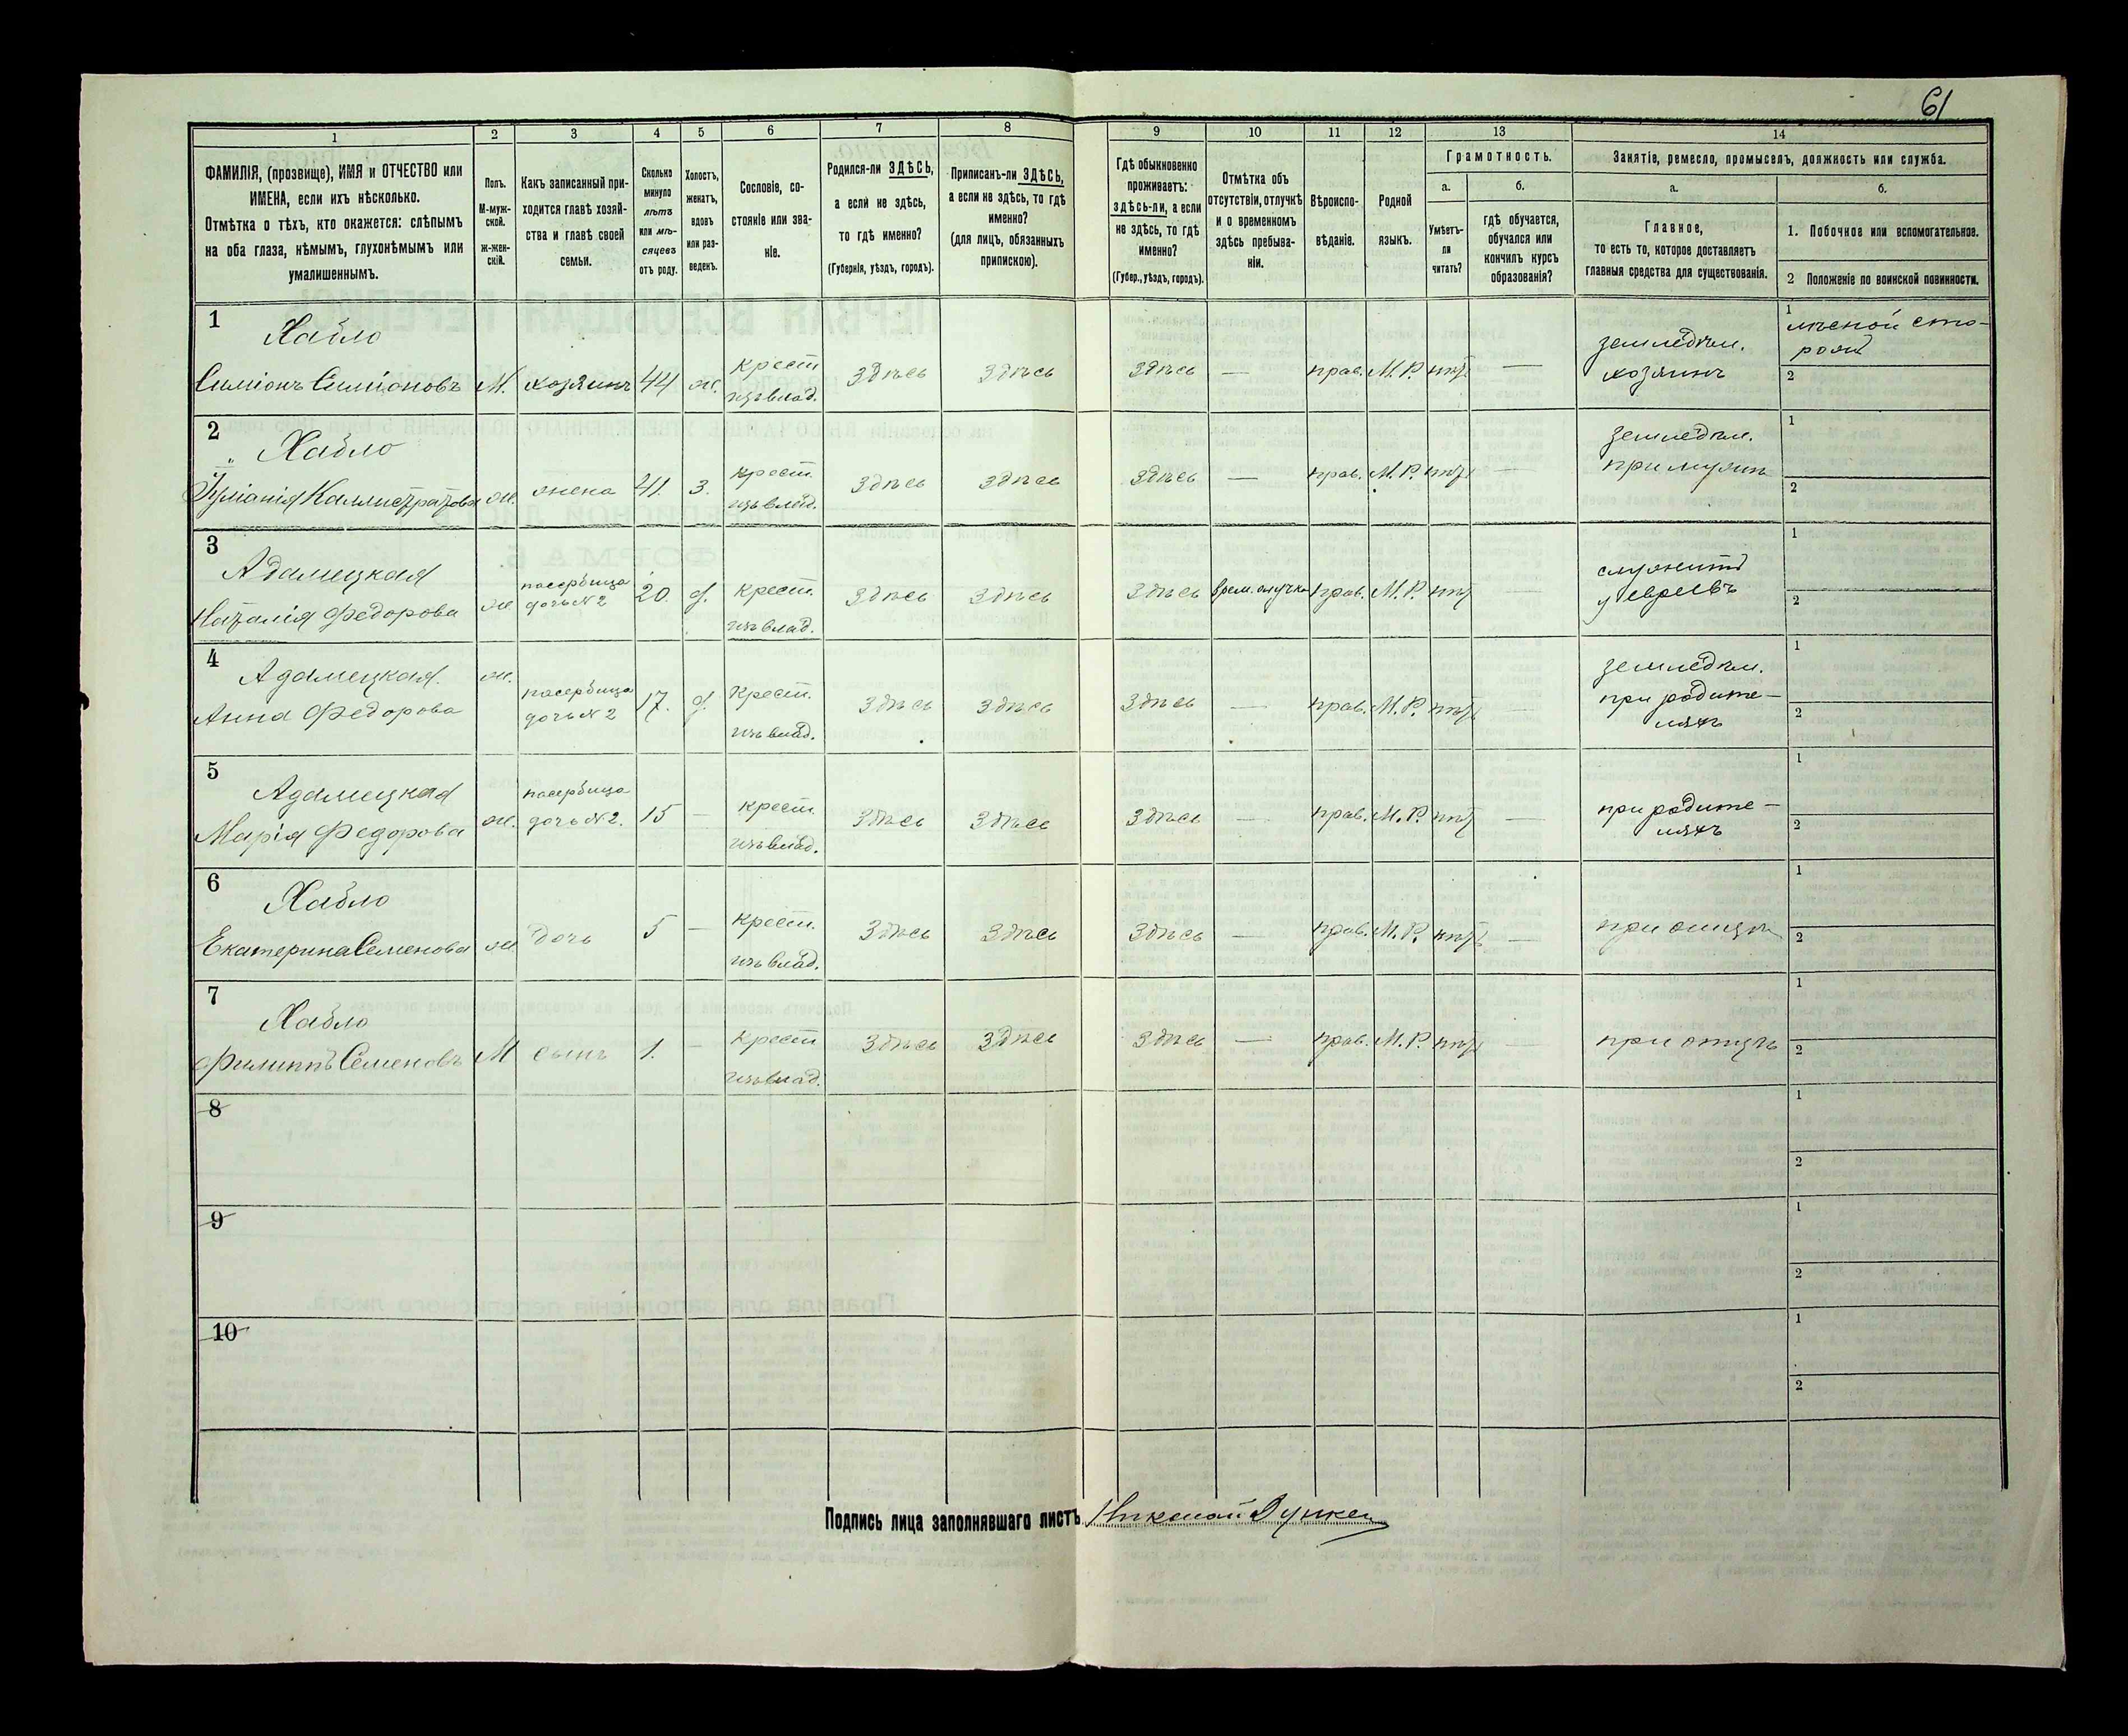 61
1 2 3 4 5 6 7 8 9 10 11 12 13 14
ФАМИЛІЯ, (прозвище), ИМЯ и ОТЧЕСТВО или
ИМЕНА, если ихъ нѣсколько.
Отмѣтка о тѣхъ, кто окажется: слѣпымъ
на оба глаза, нѣмымъ, глухонѣмымъ или
умалишеннымъ.
Полъ.
М-муж-
ской.
ж-жен-
скій.
Какъ записанный при-
ходится главѣ хозяй-
ства и главѣ своей
семьи.
Сколько
минуло
лѣтъ
или мѣ-
сяцевъ
отъ роду.
Холостъ,
женатъ,
вдовъ
или раз-
веденъ.
Сословіе, со-
стояніе или зва-
ніе.
Родился-ли ЗДѢСЬ,
а если не здѣсь,
то гдѣ именно?
(Губернія, уѣздъ, городъ).
Приписанъ-ли ЗДѢСЬ,
а если не здѣсь, то гдѣ
именно?
(для лицъ, обязанныхъ
припискою).
Гдѣ обыкновенно
проживаетъ:
здѣсь-ли, а если
не здѣсь, то гдѣ
именно?
(Губер., уѣздъ, городъ).
Отмѣтка объ
отсутствіи, отлучкѣ
и о временномъ
здѣсь пребыва-
ніи.
Вѣроиспо-
вѣданіе.
Родной
языкъ.
Грамотность.
а. б.
Умѣетъ-
ли
читать?
гдѣ обучается,
обучался или
кончилъ курсъ
образованія?
Занятіе, ремесло, промыселъ, должность или служба.
а. б.
Главное,
то есть то, которое доставляетъ
главныя средства для существованія.
1. Побочное или вспомогательное.
2 Положеніе по воинской повинности.
1
Хабло
Симіонъ Симіоновъ М. хозяинъ 44 ж.
крест
изъ влад.
здѣсь здѣсь здѣсь — прав. М.Р. нѣтъ —
земледѣл.
хозяинъ
1 лѣсной сто-
рожъ
2
2
Хабло
Іуліанія Каллистратова ж. жена 41. з.
крест.
изъ влад.
здѣсь здѣсь здѣсь — прав. М.Р. нѣтъ —
земледѣл.
при мужѣ
1
2
3
Адамецкая
Наталія Федорова ж.
пасербица
дочь №2
20. д.
крест.
изъ влад.
здѣсь здѣсь здѣсь врем. отлучка прав. М.Р. нѣтъ —
служитъ
у евреевъ
1
2
4
Адамецкая.
Анна Федорова ж.
пасербица
дочь №2
17. д.
крест.
изъ влад.
здѣсь здѣсь здѣсь — прав. М.Р. нѣтъ —
земледѣл.
при родите-
ляхъ
1
2
5
Адамецкая
Марія Федорова ж.
пасербица
дочь №2.
15 —
крест.
изъ влад.
здѣсь здѣсь здѣсь — прав. М.Р. нѣтъ —
при родите-
ляхъ
1
2
6
Хабло
Екатерина Семенова ж. дочь 5 —
крест.
изъ влад.
здѣсь здѣсь здѣсь — прав. М.Р. нѣтъ —
при отцѣ
1
2
7
Хабло
Филиппъ Семеновъ М сынъ 1. —
крест
изъ влад.
здѣсь здѣсь здѣсь — прав. М.Р. нѣтъ —
при отцѣ
1
2
8
1
2
9
1
2
10
1
2
Подпись лица заполнявшаго листъ Николай